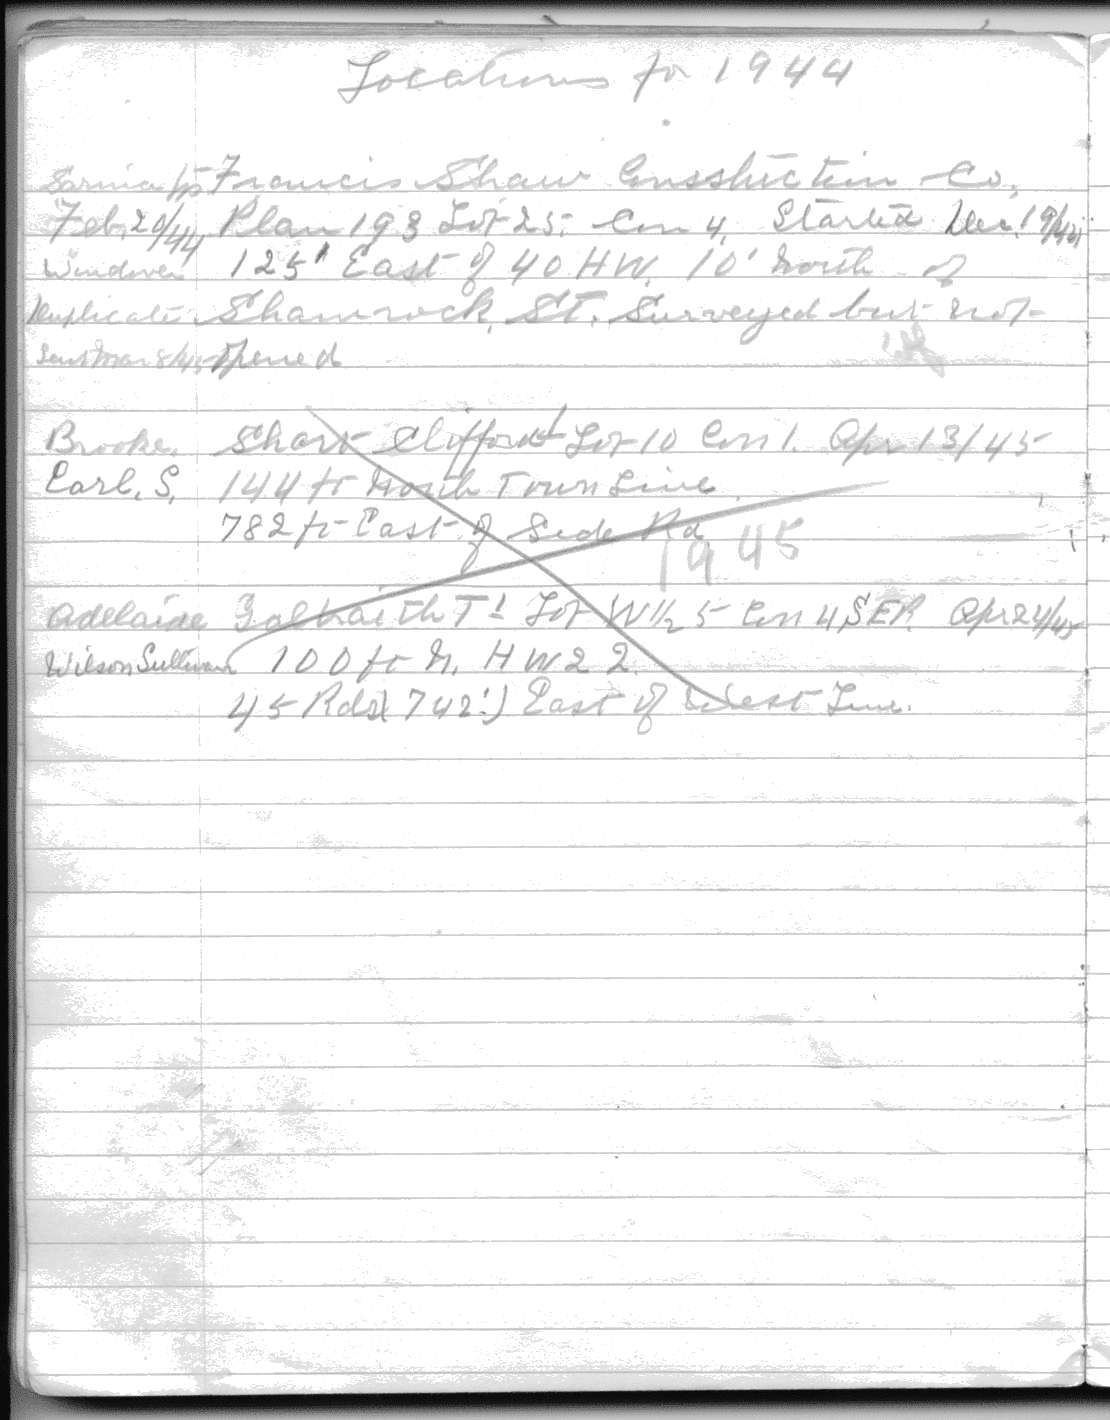 Locations for 1944
Sarnia Tp Francis Shaw Consstuction Co.
Feb. 20/44 Plan 193 Lot 25. Con 4. Started Dec. 19/42
Windover 125' East of 40 HW. 10' North of
Duplicate Shamrock ST. Surveyed but not
Sent Mar 8/44 opened
Brooke. Short Clifford Lot 10 Con 1. Apr 13/45
Earl. S. 144 ft North Town Line
782 ft East of Side Rd
1945
Adelaide Galbraith T Lot W 1/2 5 Con 4 SER. Apr 24/45
Wilson Sullivan 100 ft N. HW 22.
45 Rds (742') East of West Line.